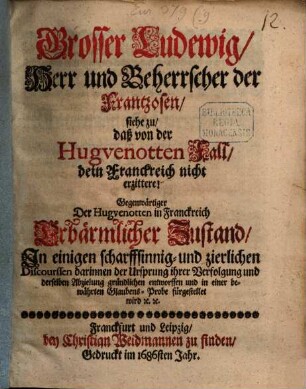 Eur 379 (9
12.
Grosser Ludewig/
Herr und Beherrscher der
Frantzosen/
siehe zu/
daß von der
Hugvenotten Fall/
dein Franckreich nicht
erzittere!
BIBLIOTHECA
REGIA
MONACENSIS
Gegenwärtiger
Der Hugvenotten in Franckreich
Erbärmlicher Zustand/
In einigen scharfffinnig- und zierlichen
Discourssen darinnen der Ursprung ihrer Verfolgung und
derselben Abzielung gründlichen entworffen und in einer be-
währten Glaubens- Probe fürgestellet
wird ꝛc. ꝛc.
Franckfurt und Leipzig/
bey Christian Weidmannen zu finden/
Gedruckt im 1686sten Jahr.